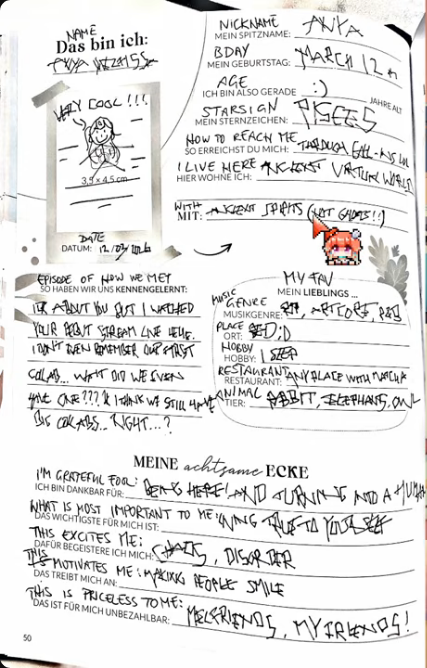 NAME
Das bin ich:
NICKNAME
MEIN SPITZNAME: ANYA
BDAY
MEIN GEBURTSTAG: MARCH 12
AGE
ICH BIN ALSO GERADE :) JAHRE ALT
STARSIGN
MEIN STERNZEICHEN: PISCES
VERY COOL!!!
3,5 x 4,5 cm
HOW TO REACH ME
SO ERREICHST DU MICH: THROUGH
I LIVE HERE
HIER WOHNE ICH: ANCIENT VIRTUAL WORLD
WITH
MIT: ANCIENT SPIRITS (NOT GHOSTS!!)
DATE
DATUM: 12/03/
EPISODE OF HOW WE MET
SO HABEN WIR UNS KENNENGELERNT:
ABOUT YOU BUT I WATCHED
YOUR DEBUT STREAM LIVE
I DON'T EVEN REMEMBER OUR FIRST
COLLAB... WHAT DID WE EVEN
ONE??? I THINK WE STILL
COLLABS... RIGHT...?
MY FAV
MEIN LIEBLINGS ...
MUSIC GENRE
MUSIKGENRE: ARTCORE, R&B
PLACE
ORT: ;D
HOBBY
HOBBY: I SLEEP
RESTAURANT
RESTAURANT: ANY PLACE WITH MATCHA
ANIMAL
TIER: RABBIT, ELEPHANTS, OWL
MEINE achtsame ECKE
I'M GRATEFUL FOR:
ICH BIN DANKBAR FÜR: BEING HERE! AND TURNING INTO A HUMAN
WHAT IS MOST IMPORTANT TO ME:
DAS WICHTIGSTE FÜR MICH IST: TRUE TO YOURSELF
THIS EXCITES ME:
DAFÜR BEGEISTERE ICH MICH: CHAOS, DISORDER
THIS MOTIVATES ME:
DAS TREIBT MICH AN: MAKING PEOPLE SMILE
THIS IS PRICELESS TO ME:
DAS IST FÜR MICH UNBEZAHLBAR: MY FRIENDS!
50